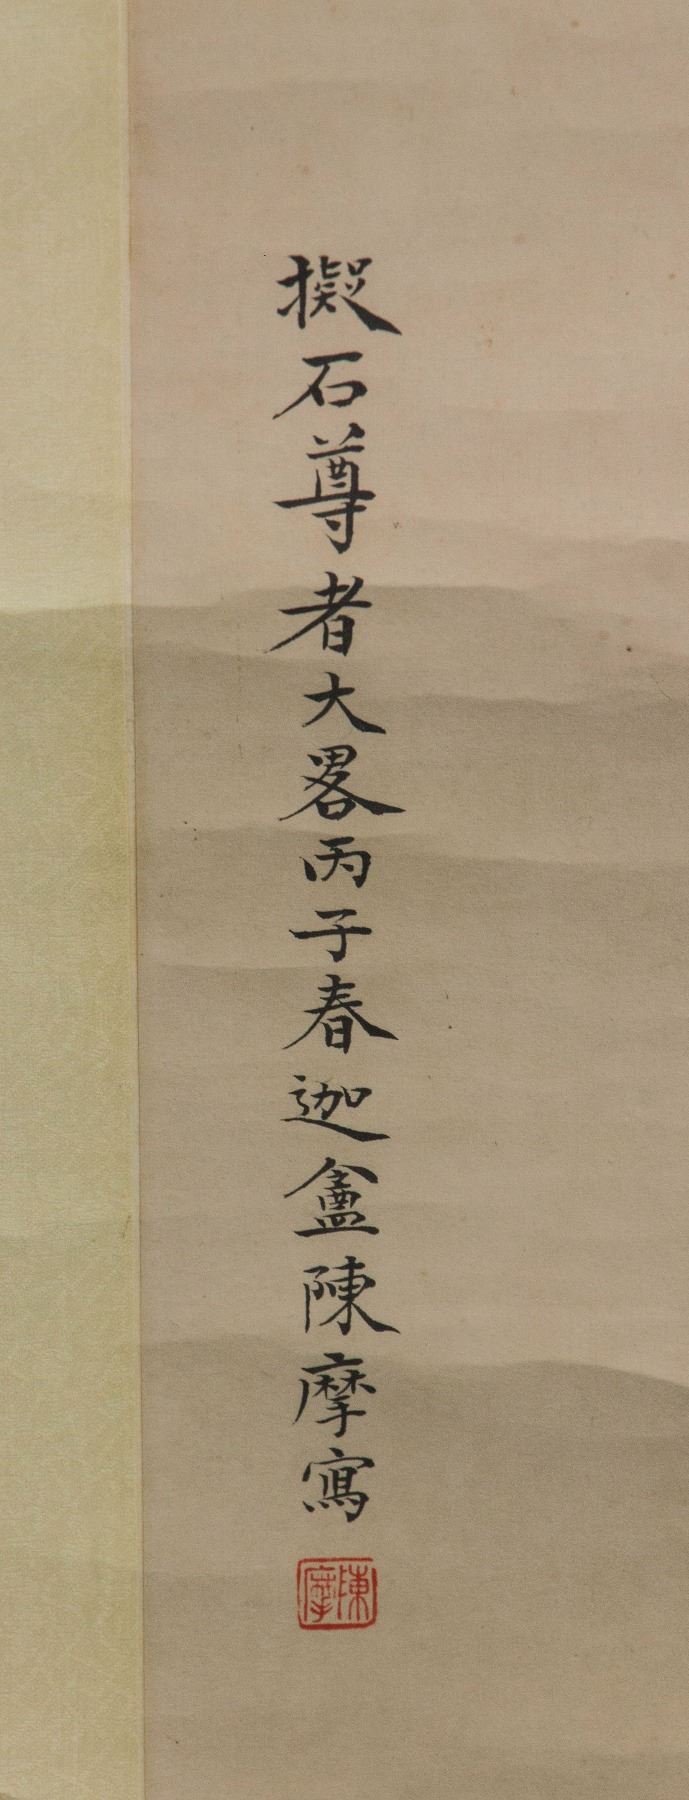 擬石尊者大畧丙子春迦盦陳摩寫
陳摩